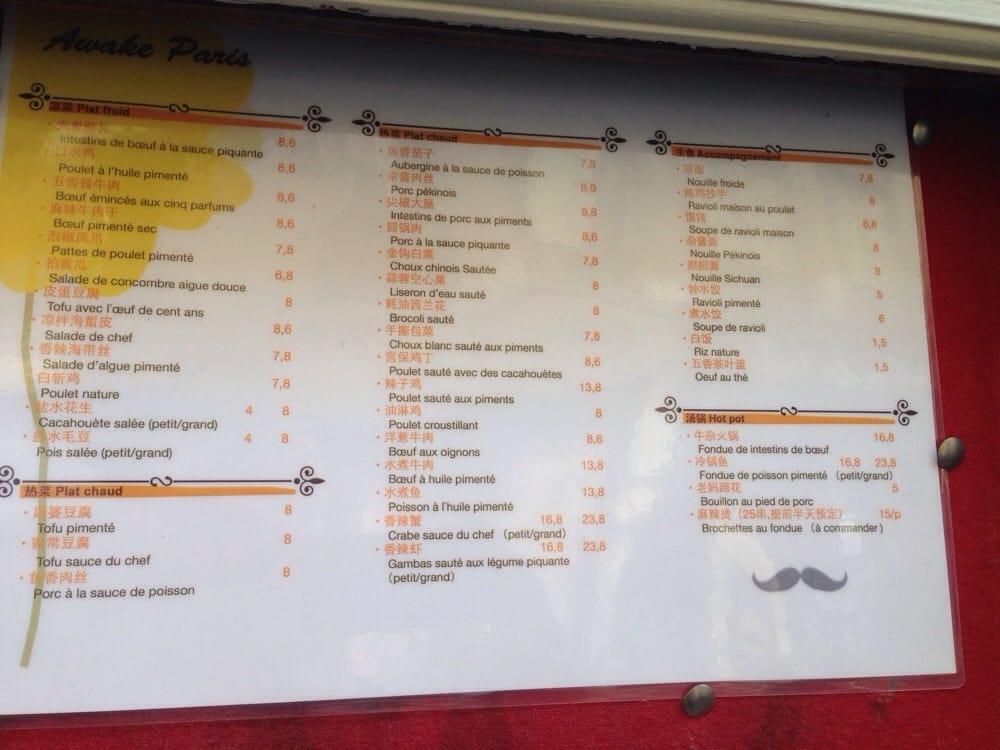 Awake Paris
凉菜 Plat froid
夫妻肺片
Intestins de bœuf à la sauce piquante 8,6
口水鸡
Poulet à l'huile pimenté 8,6
五香酱牛肉
Bœuf émincés aux cinq parfums 8,6
麻辣牛肉干
Bœuf pimenté sec 8,6
泡椒凤爪
Pattes de poulet pimenté 7,8
拍黄瓜
Salade de concombre aigue douce 6,8
皮蛋豆腐
Tofu avec l'œuf de cent ans 8
凉拌海蜇皮
Salade de chef 8,6
香辣海带丝
Salade d'algue pimenté 7,8
白斩鸡
Poulet nature 7,8
盐水花生 4 8
Cacahouète salée (petit/grand)
盐水毛豆 4 8
Pois salée (petit/grand)
热菜 Plat chaud
麻婆豆腐 8
Tofu pimenté
家常豆腐 8
Tofu sauce du chef
鱼香肉丝 8
Porc à la sauce de poisson
热菜 Plat chaud
鱼香茄子
Aubergine à la sauce de poisson 7,8
京酱肉丝
Porc pékinois 8,6
尖椒大肠
Intestins de porc aux piments 8,6
回锅肉
Porc à la sauce piquante 8,6
金钩白菜
Choux chinois Sautée 7,8
蒜蓉空心菜
Liseron d'eau sauté 8
耗油西兰花
Brocoli sauté 8
手撕包菜
Choux blanc sauté aux piments 7,8
宫保鸡丁
Poulet sauté avec des cacahouètes 8,6
辣子鸡
Poulet sauté aux piments 13,8
油淋鸡
Poulet croustillant 8
洋葱牛肉
Bœuf aux oignons 8,6
水煮牛肉
Bœuf à huile pimenté 13,8
水煮鱼
Poisson à l'huile pimenté 13,8
香辣蟹 16,8 23,8
Crabe sauce du chef （petit/grand)
香辣虾 16,8 23,8
Gambas sauté aux légume piquante
（petit/grand）
主食 Accompagnement
凉面
Nouille froide 7,8
炖鸡抄手
Ravioli maison au poulet 8
馄饨
Soupe de ravioli maison 6,8
杂酱面
Nouille Pékinois 8
担担面
Nouille Sichuan 8
钟水饺
Ravioli pimenté 5
煮水饺
Soupe de ravioli 6
白饭
Riz nature 1,5
五香茶叶蛋
Oeuf au thé 1,5
汤锅 Hot pot
牛杂火锅 16,8
Fondue de intestins de bœuf
冷锅鱼 16,8 23,8
Fondue de poisson pimenté （petit/grand）
老妈蹄花 5
Bouillon au pied de porc
麻辣烫（25串,提前半天预定） 15/p
Brochettes au fondue （à commander )